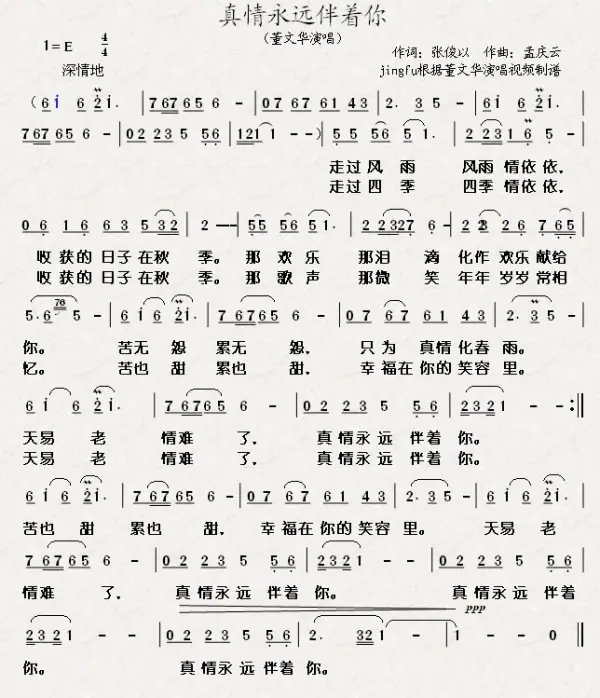 真情永远伴着你
(董文华演唱)
1=E 4/4
作词:张俊以 作曲:孟庆云
深情地
jingfu根据董文华演唱视频制谱
(6i 6 2i. | 767656 - | 0767 6143 | 2. 35 - | 6i 6 2i. |
767656 - | 022355 65 | 1121 - -) | 55 565 51. | 2 2315 2 - |
走过风雨 风雨情依依,
走过四季 四季情依依,
06 16 63 532 | 2 - -- | 55 56 51. | 2 2327 6 - | 02 23 26 765 |
收获的日子在秋季。那欢乐 那泪滴化作欢乐献给
收获的日子在秋季。那歌声 那微笑年年岁岁常相
5.6 76 5 - | 6 i 6 2i. | 7 6765 6 - | 0 7 67 61 43 | 2. 3 5 - |
你。 苦无怨累无怨, 只为真情化春雨。
忆。 苦也甜累也甜, 幸福在你的笑容里。
6 i 6 2i. | 7 6765 6 - | 0 2 23 5 65 | 2321 - :||
天易老 情难了, 真情永远伴着你。
天易老 情难了, 真情永远伴着你。
6 i 6 2i. | 7 6765 6 - | 07 67 61 43 | 2. 3 5 - | 6 i 6 2i. |
苦也甜累也甜, 幸福在你的笑容里。 天易老
7 6765 6 - | 02 23 5 56 | 2321 - | 02 23 5 56 |
情难了, 真情永远伴着你。 真情永远伴着
ppp
2321 - - | 02 23 5 65 | 2. 321 | 1 - - | 1 - - 0 ||
你。 真情永远伴着你。